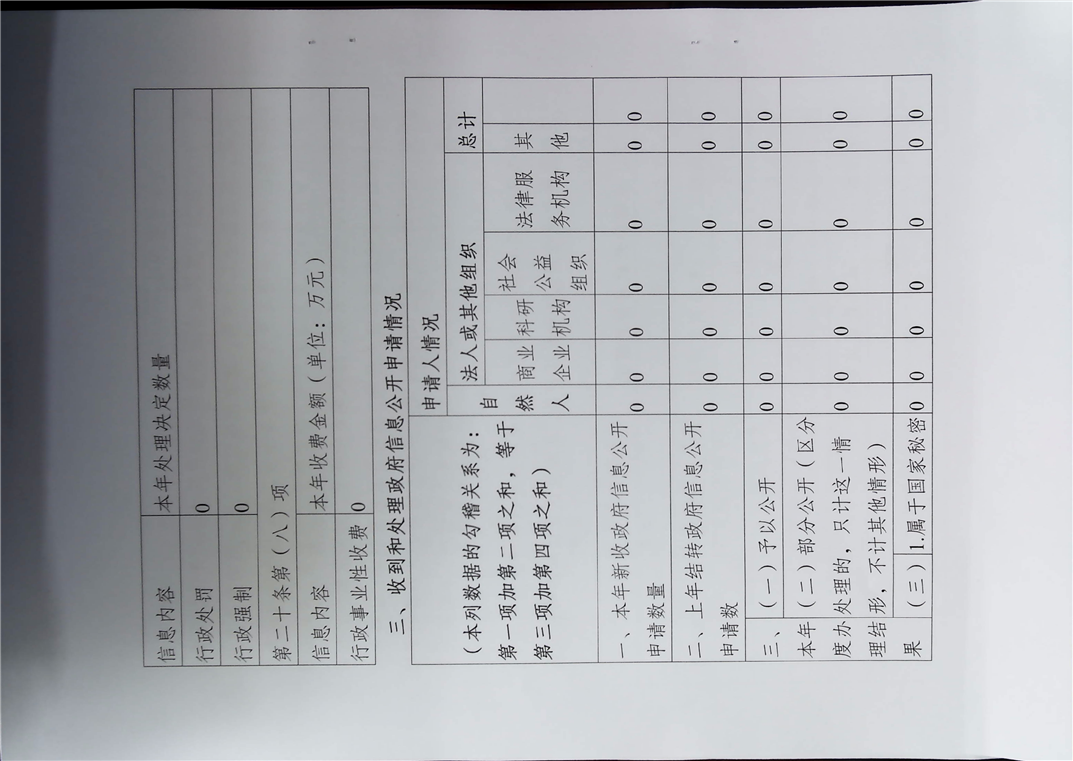 信息内容 本年处理决定数量
行政处罚 0
行政强制 0
第二十条第（八）项
信息内容 本年收费金额（单位：万元）
行政事业性收费 0
三、收到和处理政府信息公开申请情况
（本列数据的勾稽关系为：
第一项加第二项之和，等于
第三项加第四项之和）
申请人情况
自
然
人
法人或其他组织
总计
商业
企业
科研
机构
社会
公益
组织
法律服
务机构
其
他
一、本年新收政府信息公开
申请数量
0 0 0 0 0 0 0
二、上年结转政府信息公开
申请数
0 0 0 0 0 0 0
三、
本年
度办
理结
果
（一）予以公开 0 0 0 0 0 0 0
（二）部分公开（区分
处理的，只计这一情
形，不计其他情形）
0 0 0 0 0 0 0
（三） 1.属于国家秘密 0 0 0 0 0 0 0